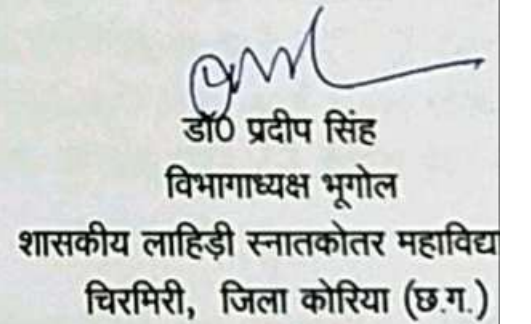 डॉ0 प्रदीप सिंह
विभागाध्यक्ष भूगोल
शासकीय लाहिड़ी स्नातकोतर महाविद्य
चिरमिरी, जिला कोरिया (छ.ग.)